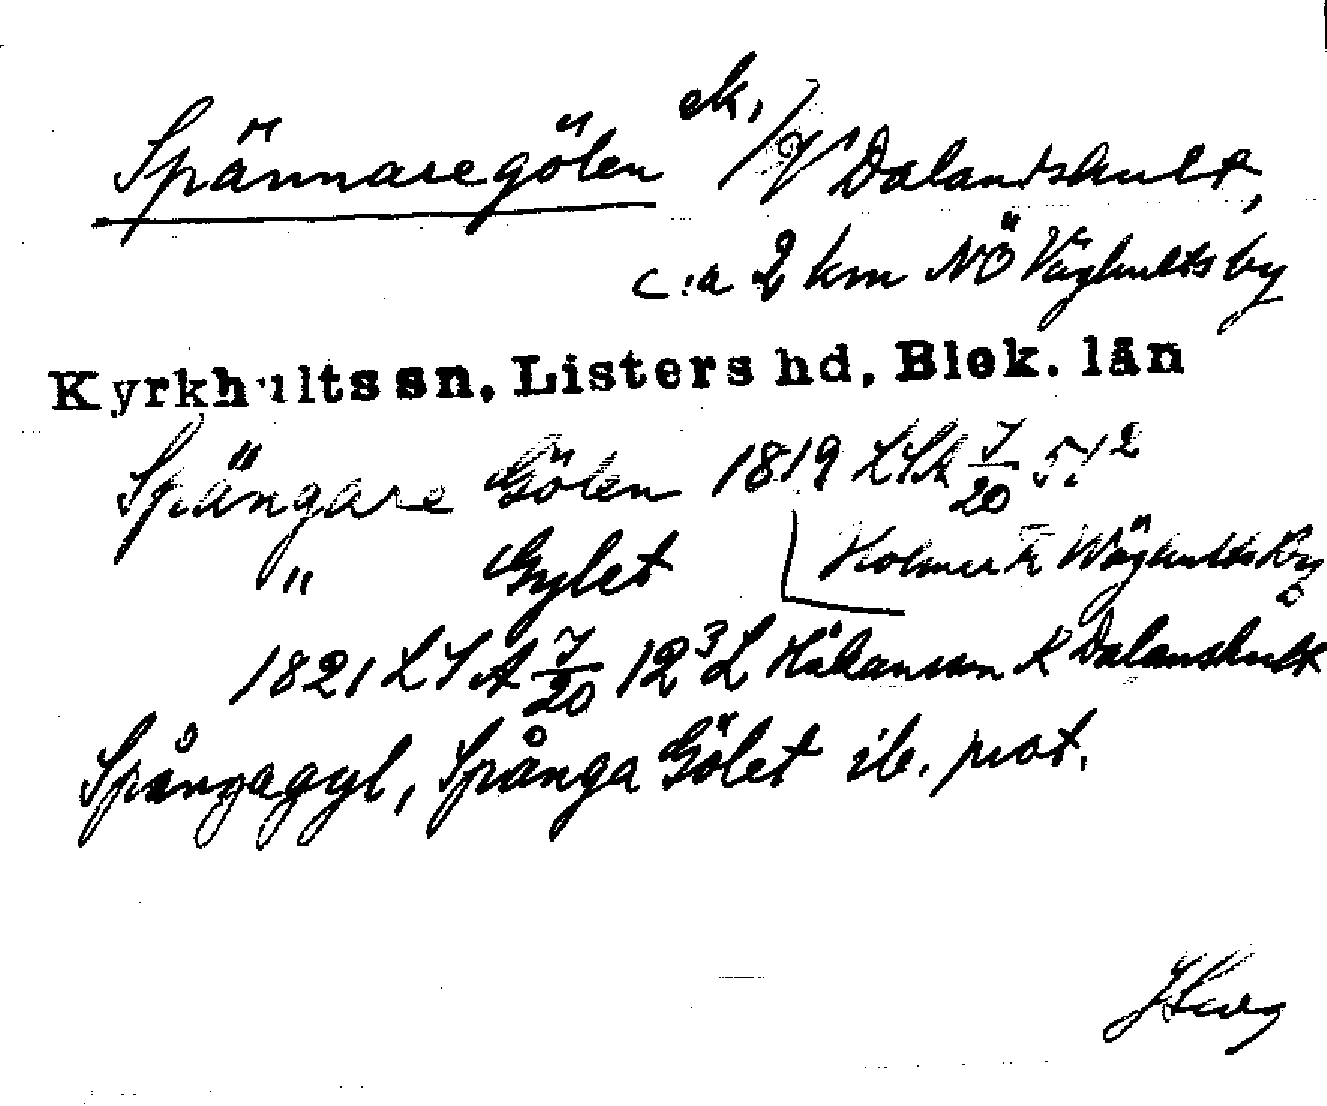 Spännaregölen ek. / V Dalandshult,
c:a 2 km NÖ Väghults by
Kyrkhults sn, Listers hd, Blek. län
Spängare Gölen 1819 LSA 7/20 5:1²
" Gylet Väghults By
1821 LSA 7/20 12³ L Håkansson Å Dalanshult
Spångagyl, Spånga Gölet ib. prot.